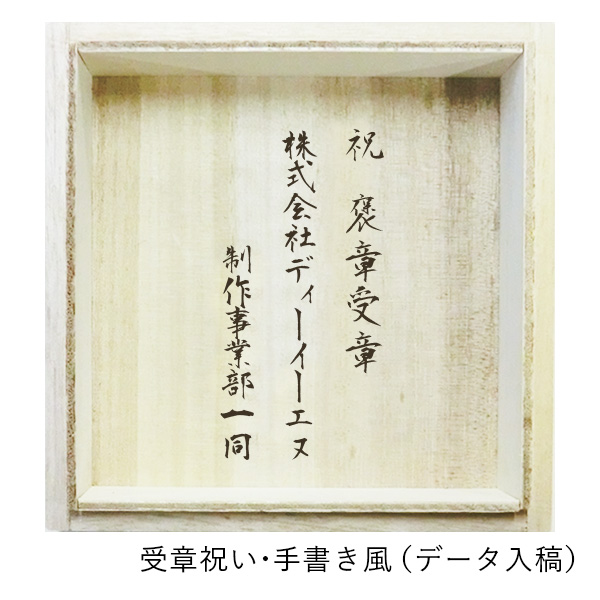 祝 褒章受章
株式会社ディーイーエヌ
制作事業部一同
受章祝い・手書き風（データ入稿）